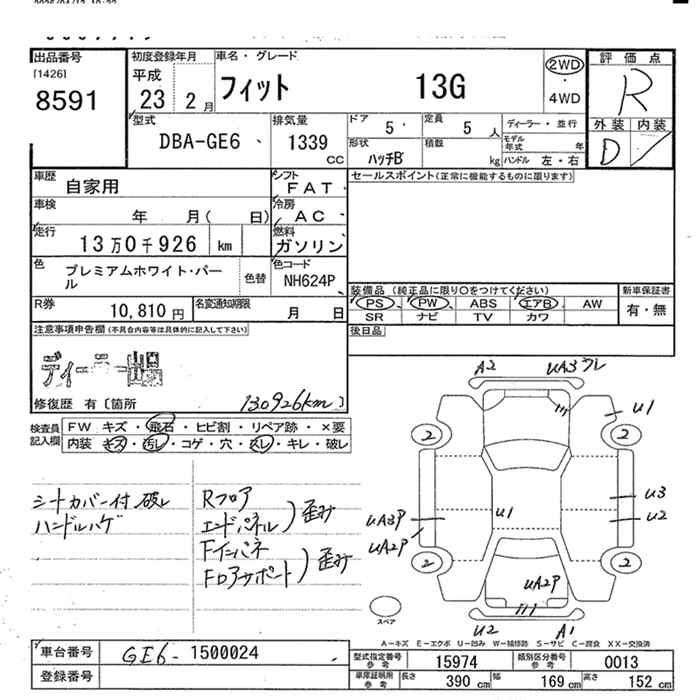 出品番号
[1426]
8591
初度登録年月
平成
23 2 月
車名・グレード
フィット 13G
2WD
・
4WD
評価点
R
外装 内装
D
型式
DBA-GE6
排気量
1339
CC
ドア
5
定員
5 人
ディーラー・並行
形状
ハッチB
積数
kg
モデル年式 年
ハンドル 左・右
車歴
自家用
シフト
FAT
セールスポイント(正常に機能するものに限ります)
車検
年 月( 日)
冷房
AC
走行
13万0千926 km
燃料
ガソリン
色
プレミアムホワイト・パール
色替
色コード
NH624P
装備品 (純正品に限り○をつけてください)
PS PW ABS エアB AW
SR ナビ TV カワ
新車保証書
有・無
R券
10,810 円
名変通知期限
月 日
後日品
注意事項申告欄(不具合内容等は具体的に記入して下さい)
ディーラー出品
修復歴 有 [箇所 130926km]
検査員記入欄
FW キズ・飛石・ヒビ割・リペア跡・×要
内装 キズ・汚レ・コゲ・穴・スレ・キレ・破レ
シートカバー付 破レ
ハンドルハゲ
Rフロア
エンドパネル
歪み
Fインパネ
Fロアサポート
歪み
A2
UA3
U1
2
2
U3
U2
U1
UA3P
UA2P
2
2
UA2P
U2
A1
スペア
A-キズ E-エクボ U-凹み W-補修跡 S-サビ C-腐食 XX-交換済
車台番号
GE6-1500024
登録番号
型式指定番号
参考
15974
類別区分番号
参考
0013
車庫証明用
参考
長さ
390 cm
幅
169 cm
高さ
152 cm